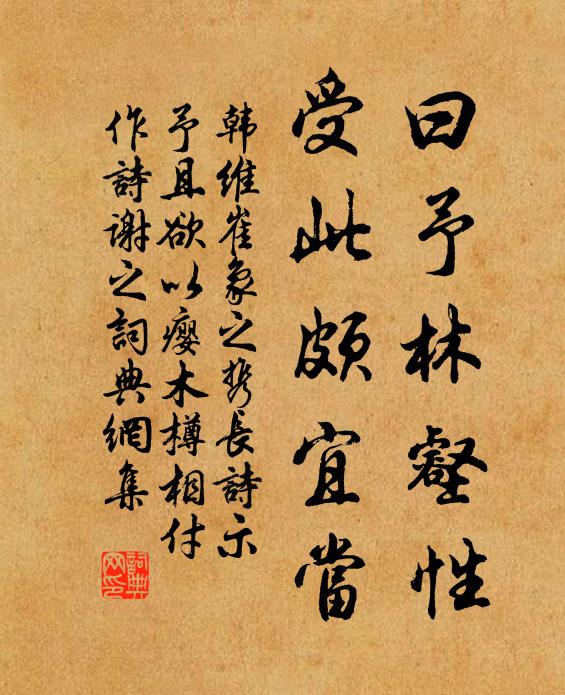 曰予林壑性
受此頗宜當
韩維崔象之携長詩示
予且欲以癭木樽相付
作詩謝之詞典網集
詞典
网印